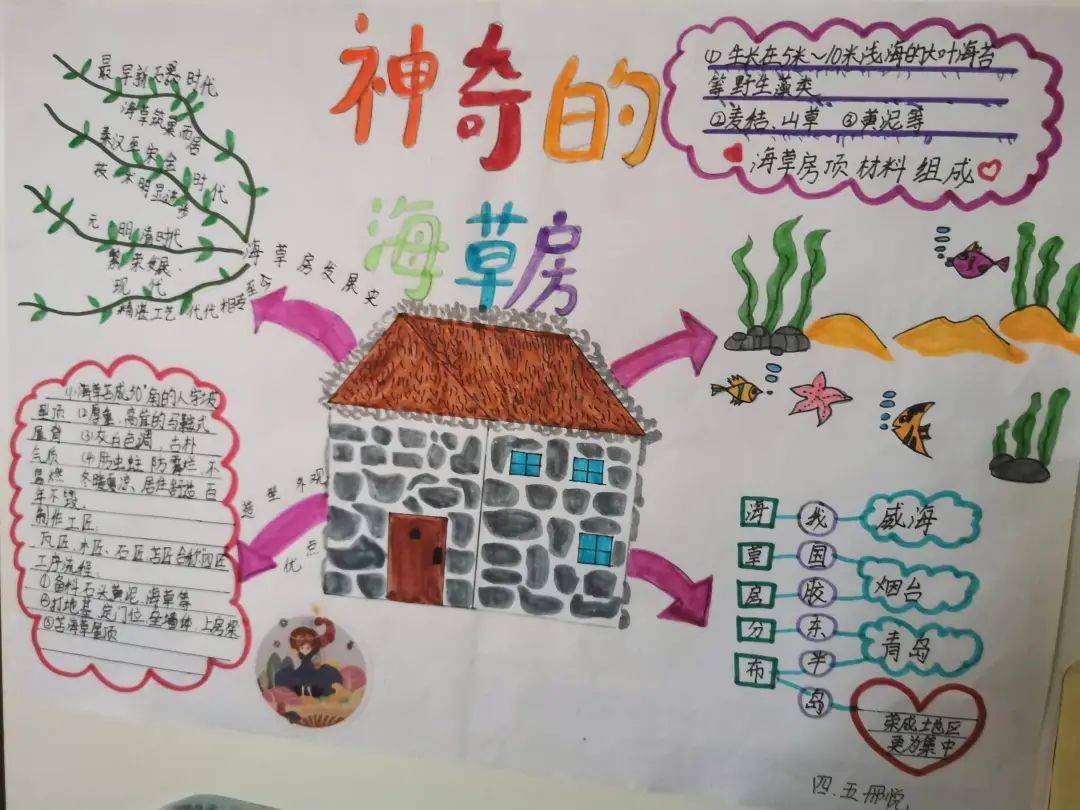 神奇的
海草房
最早新石器时代
海草筑巢而居
秦汉至宋金时代
技术明显进步
元明清时代
繁荣发展
现代
精湛工艺代代相传
至今
海草房发展史
①生长在5米~10米浅海的大叶海苔
等野生藻类
②麦秸、山草 ③黄泥等
海草房顶材料组成
(1)海草苫成50°角的人字坡
屋顶 (2)厚重、高耸的马鞍式
屋脊 (3)灰白色调、古朴
气质 (4)防虫蛀 防霉烂、不
易燃 冬暖夏凉、居住舒适 百
年不毁
制作工匠
瓦匠、木匠、石匠、苫匠合称四匠
工序流程
①备料 石头 黄泥 海草等
②打地基 定门位、垒墙体 上房梁
③苫海草屋顶
造型外观
优点
海草房分布
我国胶东半岛
威海
烟台
青岛
荣成地区
更为集中
四.五